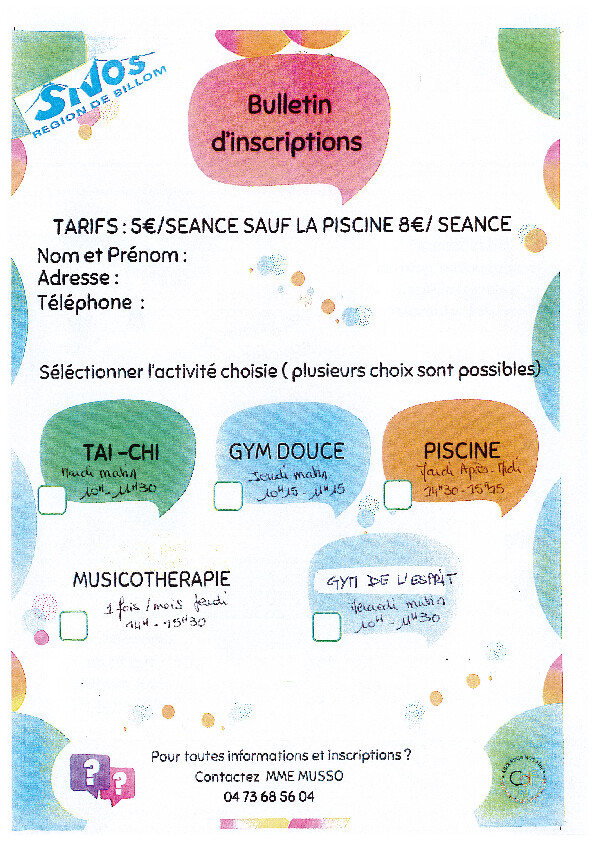 SIVOS
REGION DE BILLOM
Bulletin
d'inscriptions
TARIFS : 5€/SEANCE SAUF LA PISCINE 8€/ SEANCE
Nom et Prénom :
Adresse :
Téléphone :
Séléctionner l'activité choisie ( plusieurs choix sont possibles)
TAI-CHI
Mardi matin
10H - 11H30
GYM DOUCE
Jeudi matin
10H15 - 11H15
PISCINE
Jeudi Après-Midi
14H30 - 15H15
MUSICOTHERAPIE
1 fois / mois Jeudi
14H - 15H30
GYM DE L'ESPRIT
Vendredi matin
10H - 11H30
Pour toutes informations et inscriptions ?
Contactez MME MUSSO
04 73 68 56 04